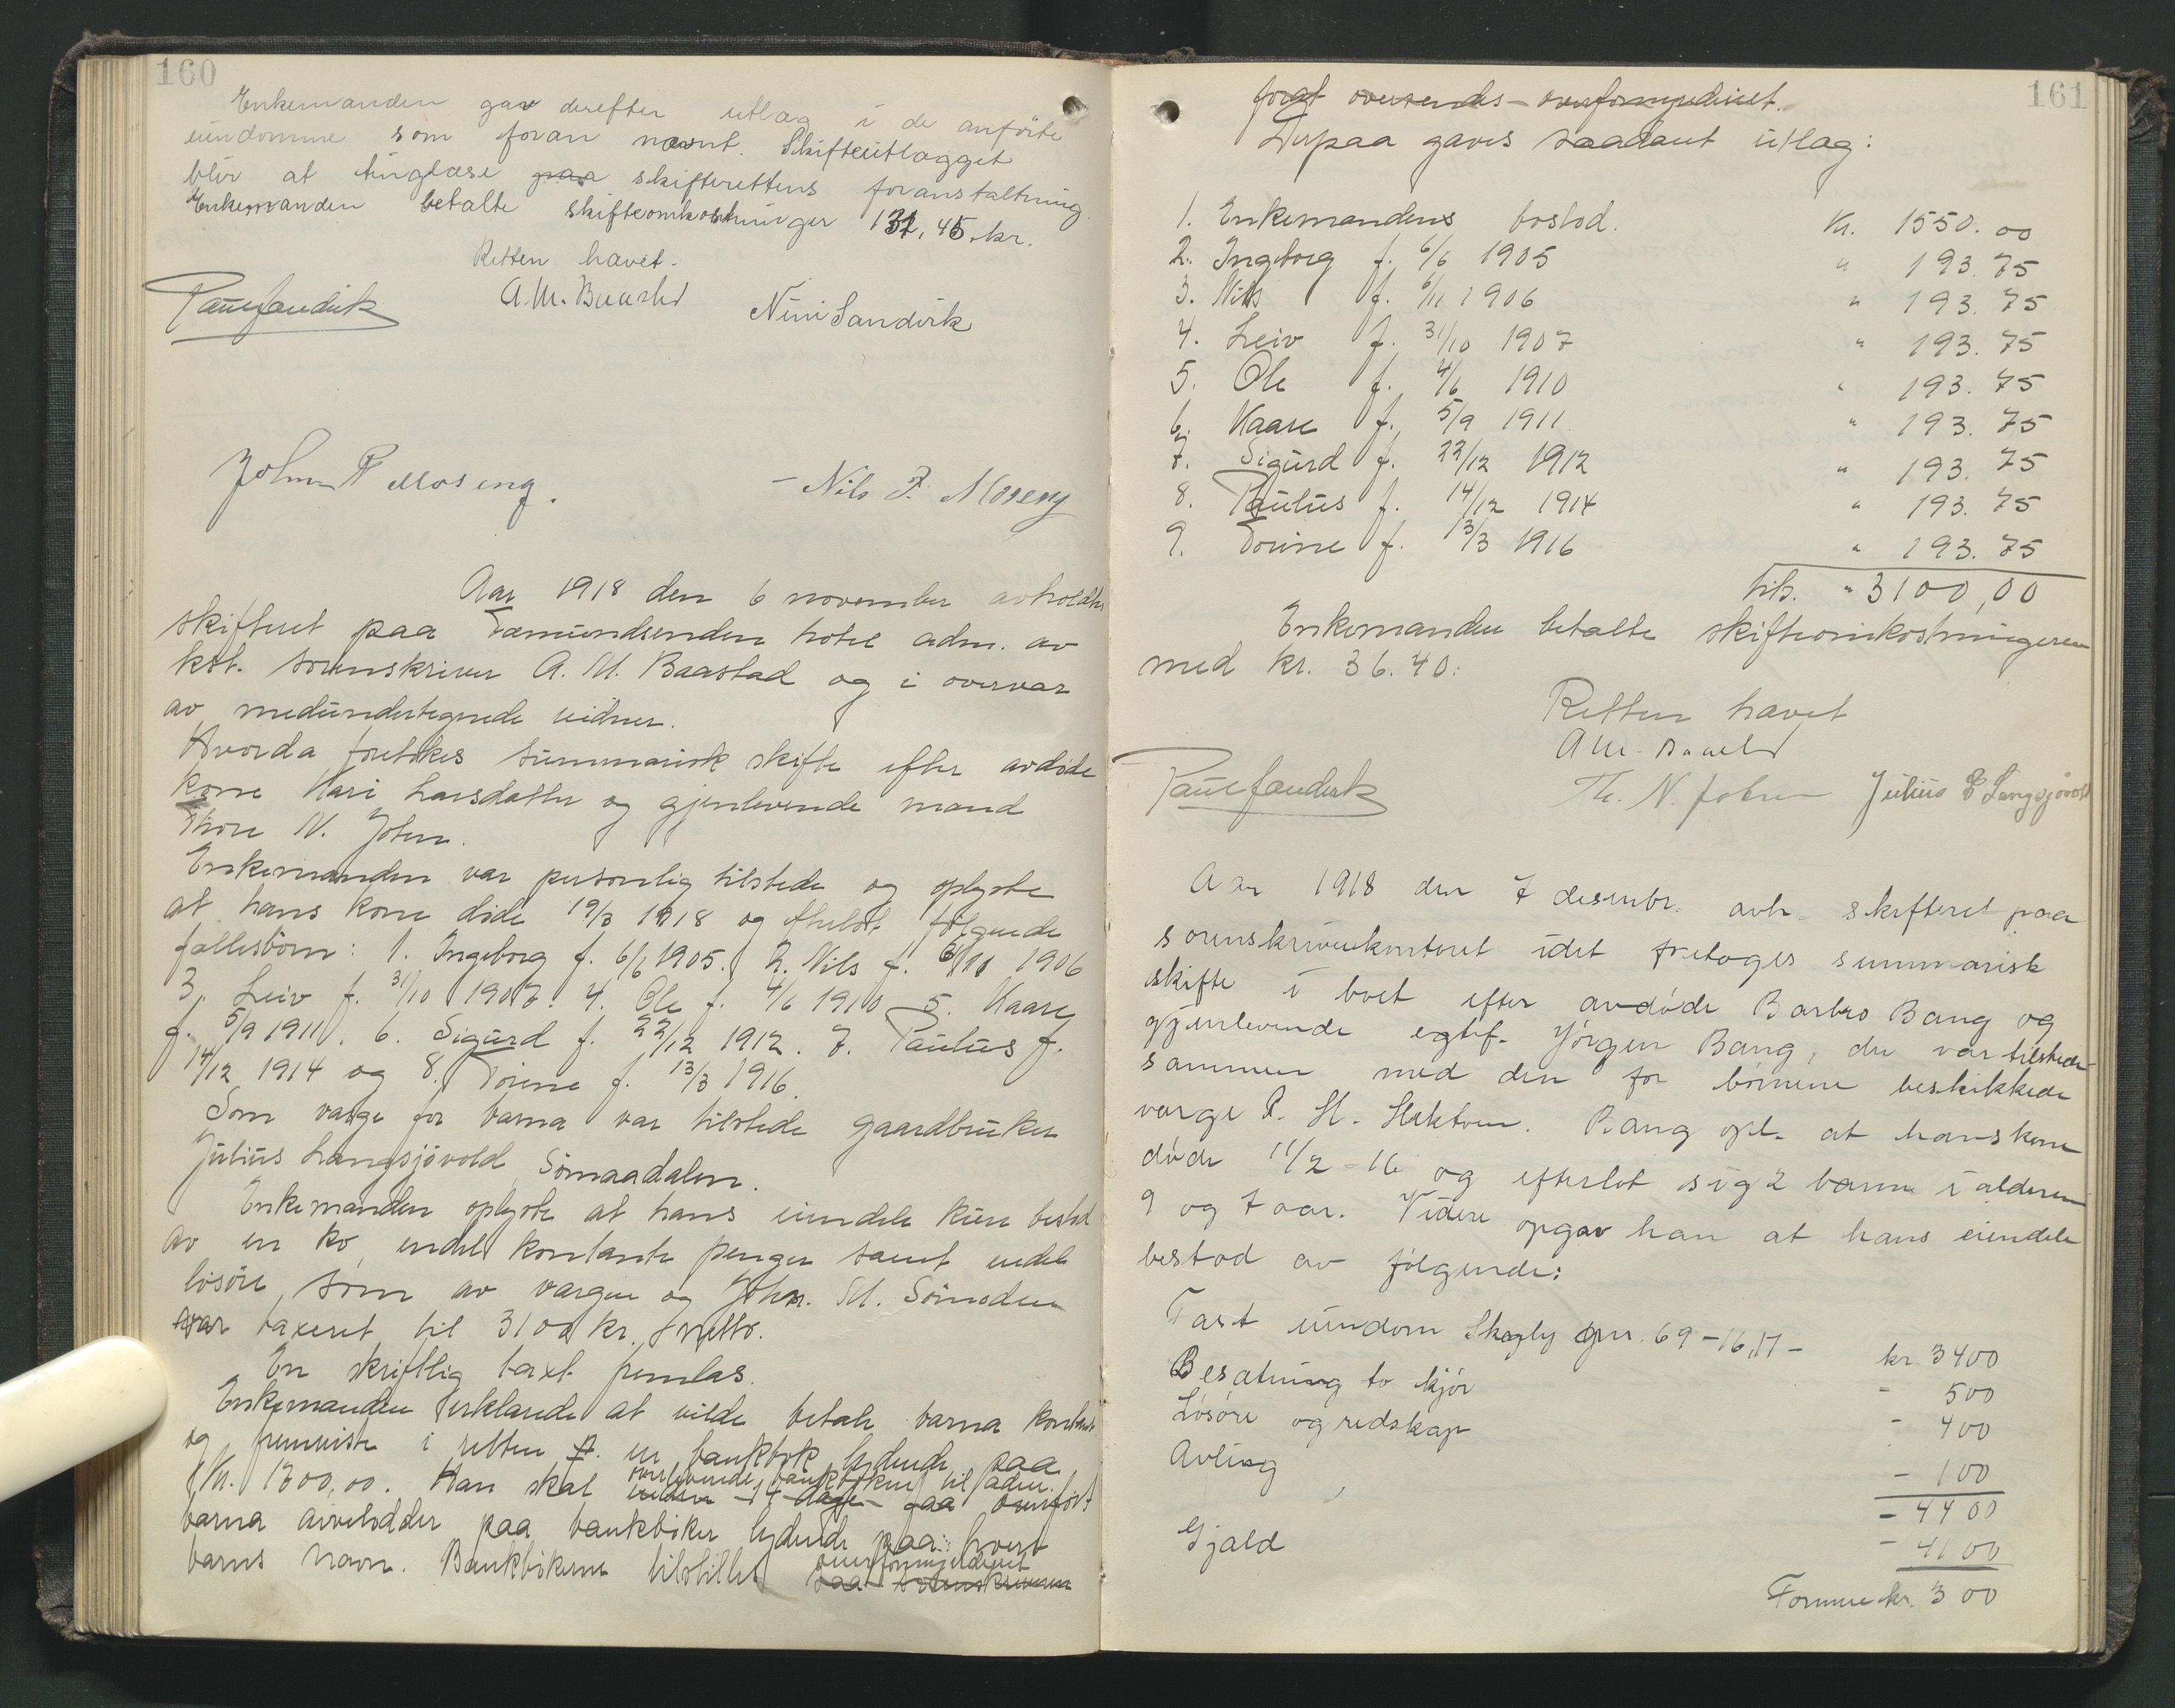 160
Enkemanden gav derefter utlag i de anförte
eiendomme som foran nævnt. Skifteutlægget
blir at tinglæse paa skifterettens foranstaltning.
Enkemanden betalte skifteomkostninger 132,45 kr.
Retten hævet.
A. M. Baastad
Nini Sandvik
John P Moseng.
- Nils J. Moseng
Aar 1918 den 6 november avholdtes
skifteret paa Fæmundsenden hotel adm. av
kst. sorenskriver A. M. Baastad og i overvær
av medundertegnede vidner.
Hvorda foretokes summarisk skifte efter avdøde
kone Kari Larsdatter og gjenlevende mand
Thore N. Johns.
Enkemanden var personlig tilstede og oplyste
at hans kone døde 19/3 1918 og efterlot følgende
fællesbörn: 1. Ingeborg f. 6/6 1905. 2. Nils f. 6/11 1906
3. Leiv f. 31/10 1907. 4. Ole f. 4/6 1910 5. Kaare
f. 5/9 1911. 6. Sigurd f. 22/12 1912. 7. Paulus f.
14/12 1914 og 8. Torine f. 13/3 1916.
Som værge for barna var tilstede gaardbruker
Julius Langsjøvold, Sömaadalen.
Enkemanden oplyste at hans eiendele kun bestod
av en ko, endel kontante penger samt endel
løsøre, som av værgen og John. M. Sömoden
var taxeret til 3100 kr. netto.
En skriftlig taxt fremlas.
Enkemanden erklærede at vilde betale barna kontant
og fremviste i retten en bankbok lydende paa
Kr. 1300,00. Han skal overlevende bankboken til
inden 14 dage faa overført
barna arvelodder paa bankböker lydende paa hvert
barns navn. Bankbökerne tilstilles overformynderiet
saa sorenskriveren
161
forat oversendes overformynderiet.
Derpaa gaves saadant utlag:
1. Enkemandens boslod. Kr. 1550.00
2. Ingeborg f. 6/6 1905 " 193.75
3. Nils f. 6/11 1906 " 193.75
4. Leiv f. 31/10 1907 " 193.75
5. Ole f. 4/6 1910 " 193.75
6. Kaare f. 5/9 1911 " 193.75
7. Sigurd f. 22/12 1912 " 193.75
8. Paulus f. 14/12 1914 " 193.75
9. Torine f. 13/3 1916 " 193.75
tils. " 3100,00
Enkemanden betalte skifteomkostningerne
med kr. 36.40.
Retten hævet
A M. Baastad
Th. N. Johns
Julius E Langsjøvold
Aar 1918 den 7 desembr. avh. skifteret paa
sorenskriverkontoret idet foretoges summarisk
skifte i boet efter avdøde Barbro Bang og
gjenlevende egtef. Jörgen Bang, der var tilstede
sammen med den for börnene beskikkede
værge P. H. Bang opl. at hans kone
døde 11/2 - 16 og efterlot sig 2 barn i alderen
9 og 7 aar. Videre opgav han at hans eiendele
bestod av følgende:
Fast eiendom Skogly gnr. 69-16,17 - kr. 3400
Besætning to kjör - 500
Løsøre og redskap - 400
Avling - 100
- 4400
Gjæld - 4100
Formue kr. 300